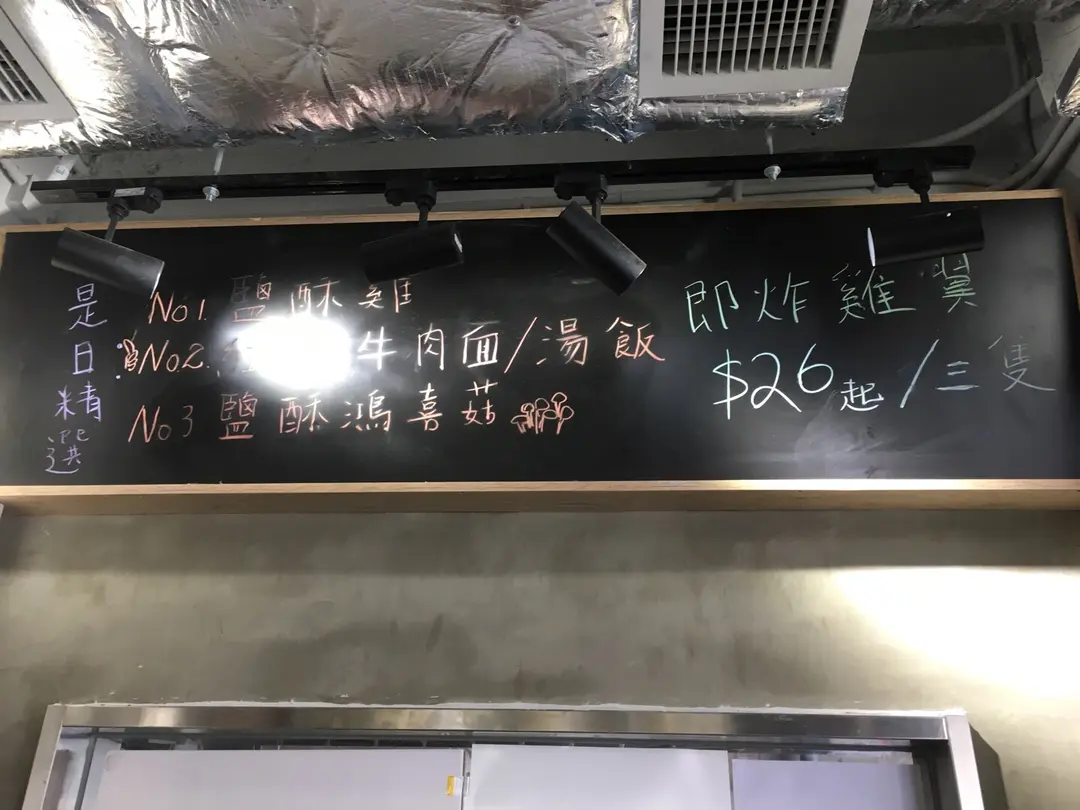 是日精選
No1. 鹽酥雞
No2. 牛肉面/湯飯
No3 鹽酥鴻喜菇
即炸雞翼
$26起/三隻